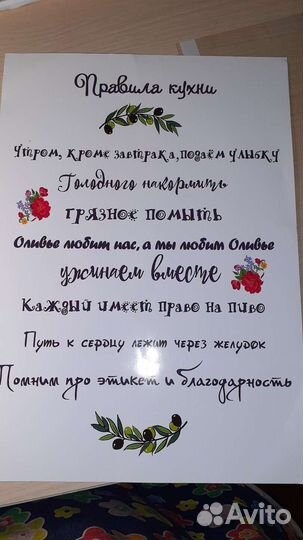 Правила кухни
Утром, кроме завтрака, подаём улыбку
Голодного накормить
грязное помыть
Оливье любит нас, а мы любим Оливье
ужинаем вместе
Каждый имеет право на пиво
Путь к сердцу лежит через желудок
Помним про этикет и благодарность
Avito